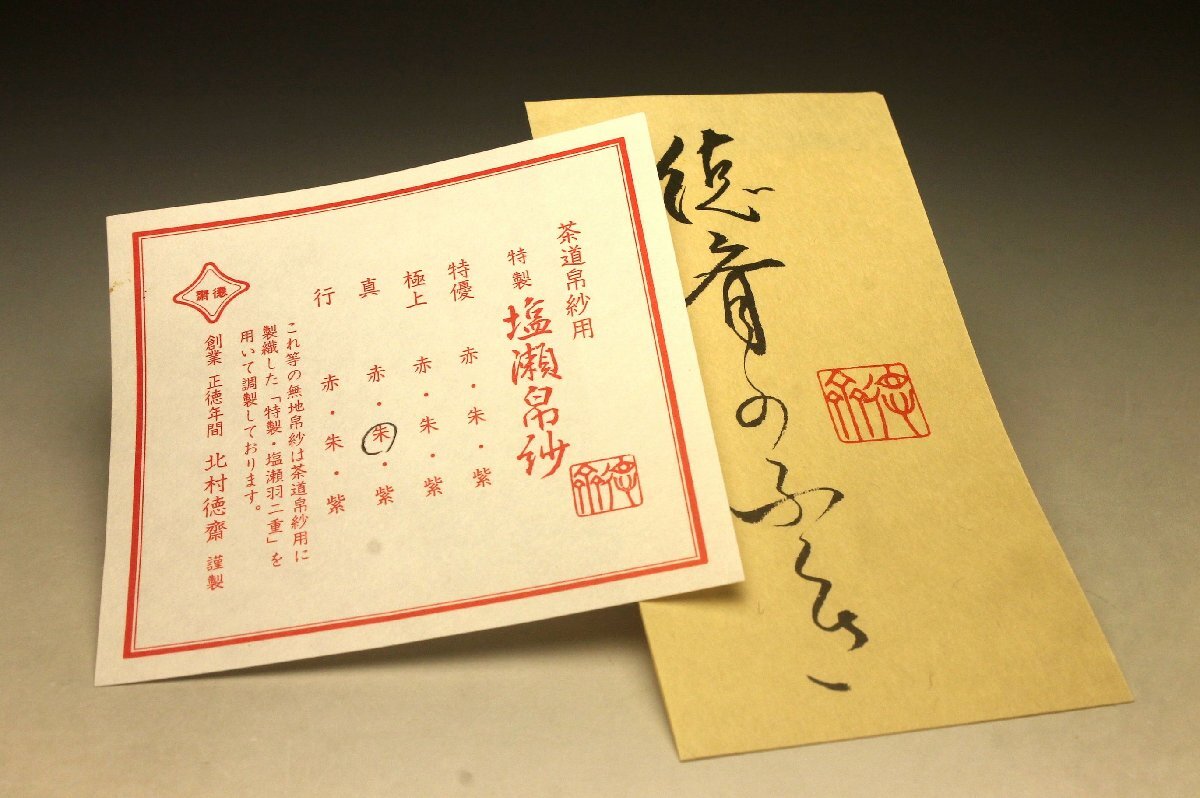 徳斎のふくさ
徳斎
茶道帛紗用
特製 塩瀬帛紗
徳斎
特優 赤・朱・紫
極上 赤・朱・紫
真 赤・朱・紫
行 赤・朱・紫
これ等の無地帛紗は茶道帛紗用に
製織した「特製・塩瀬羽二重」を
用いて調製しております。
創業 正徳年間 北村徳齋 謹製
徳齋